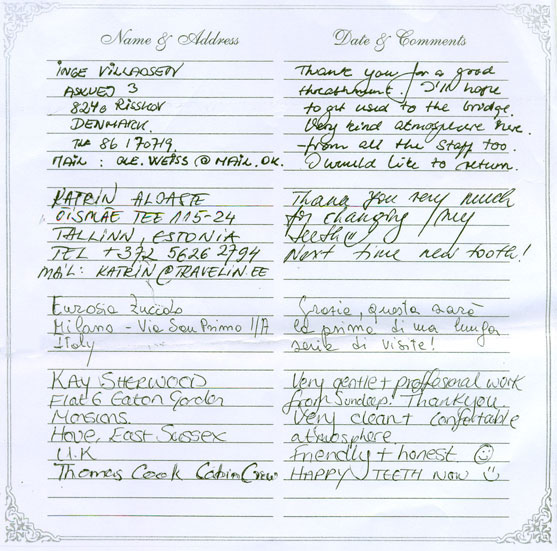 Name & Address
INGE VILLADSEN
ASKVEJ 3
8240 RISSKOV
DENMARK.
TLF 86 170719.
MAIL: OLE.WEISS@MAIL.DK.
KATRIN ALOASTE
ÕISMÄE TEE 115-24
TALLINN, ESTONIA
TEL +372 5626 2794
MAIL: KATRIN@TRAVELIN.EE
Eurosia Zuccolo
Milano - Via San Primo 1/A
Italy
KAY SHERWOOD
Flat 6 Eaton Garden
Mansions.
Hove, East Sussex
U.K
Thomas Cook Cabin Crew
Date & Comments
Thank you for a good
threathment. I'll hope
to get used to the bridge.
Very kind atmosphere here.
from all the staff too.
I would like to return.
Thank you very much
for changing my
teeth
Next time new tooth!
Grazie, questa sarà
la prima di una lunga
serie di visite!
Very gentle + proffesional work
from Sundeep. Thankyou.
Very clean + comfortable
atmosphere
friendly + honest ☺
HAPPY TEETH NOW ☺